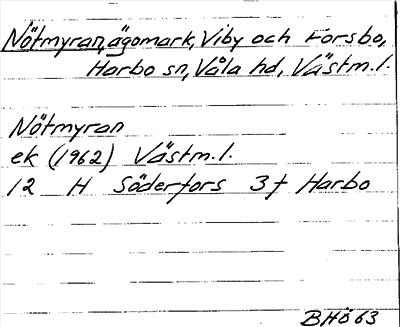 Nötmyran, ägomark, Viby och Forsbo,
Harbo sn, Våla hd, Västm.l.
Nötmyran
ek (1962) Västm.l.
12 H Söderfors 3f Harbo
BHö 63